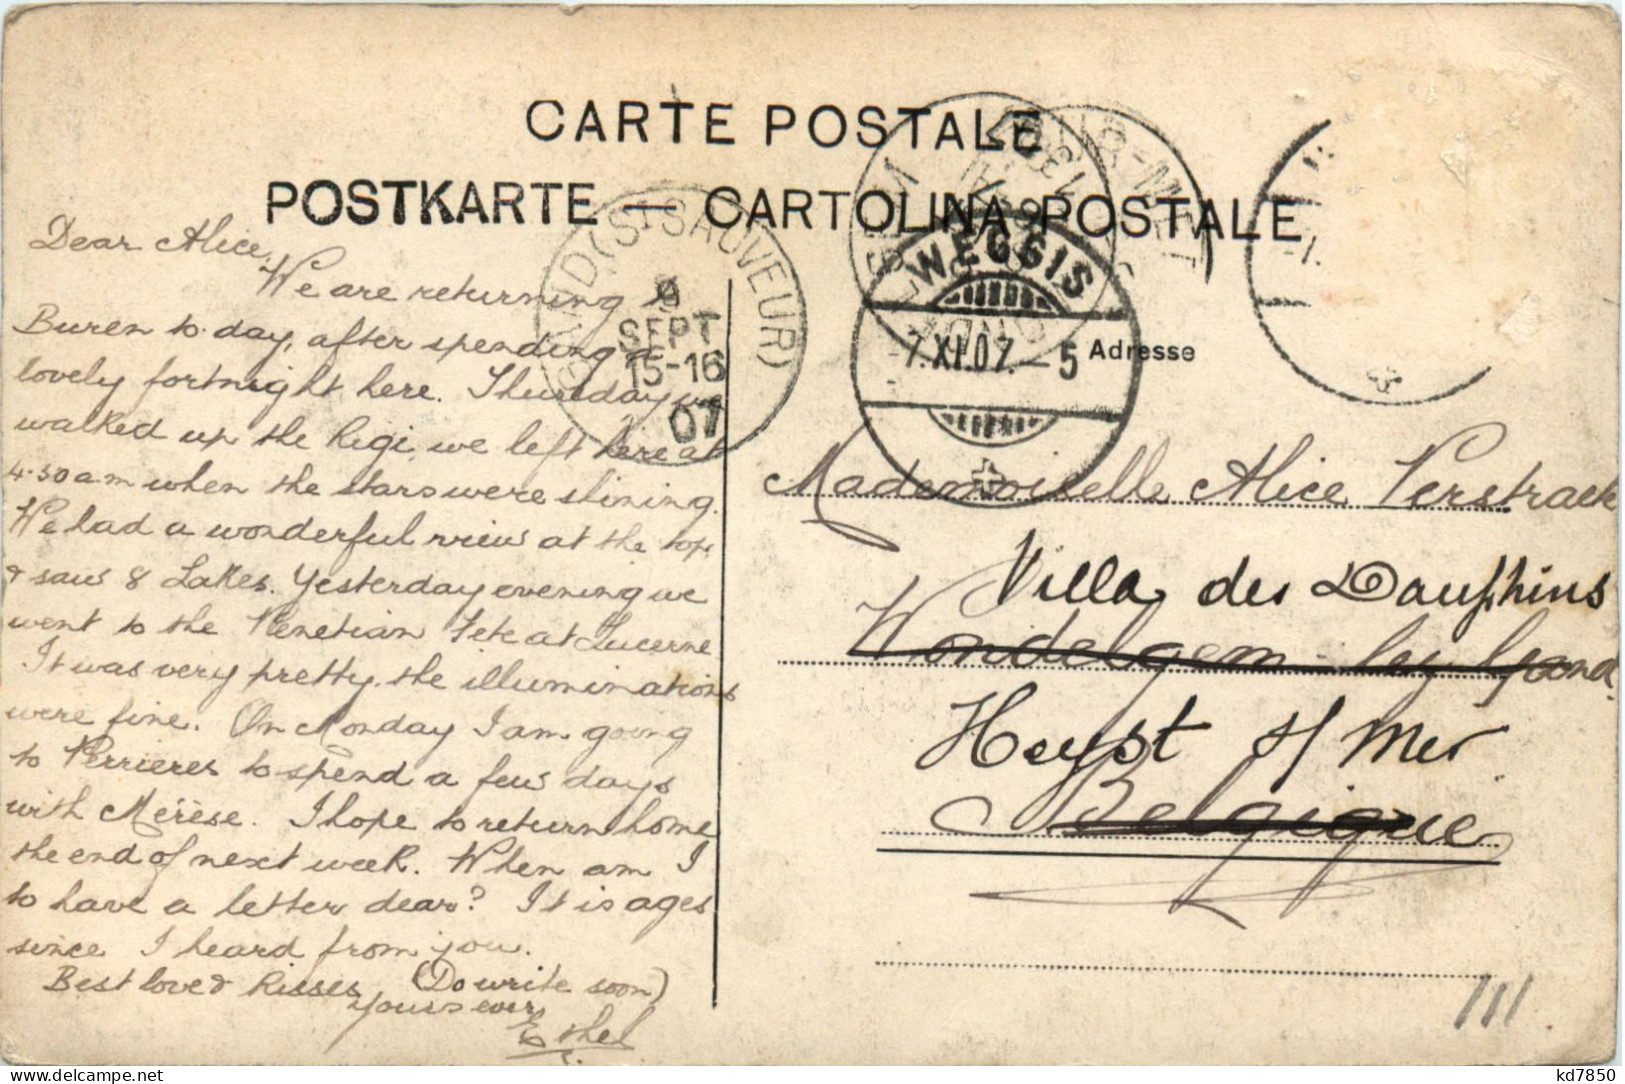 CARTE POSTALE
POSTKARTE — CARTOLINA POSTALE
Dear Alice,
We are returning to
Buren to-day, after spending a
lovely fortnight here. Thursday we
walked up the Rigi, we left here at
4.30 am when the stars were shining.
We had a wonderful view at the top
& saw 8 Lakes. Yesterday evening we
went to the Venetian Fete at Lucerne
It was very pretty, the illuminations
were fine. On Monday I am going
to Perrieres to spend a few days
with Merèse. I hope to return home
the end of next week. When am I
to have a letter dear? It is ages
since I heard from you.
Best love & kisses (Do write soon)
Yours ever
Ethel
GAND (ST SAUVEUR)
SEPT
15-16
07
WEGGIS
-7.XI.07.-5
Adresse
Mademoiselle Alice Verstraete
Villa des Dauphins
Wondelgem-lez-Gand
Heyst s/ Mer
Belgique
kd7850